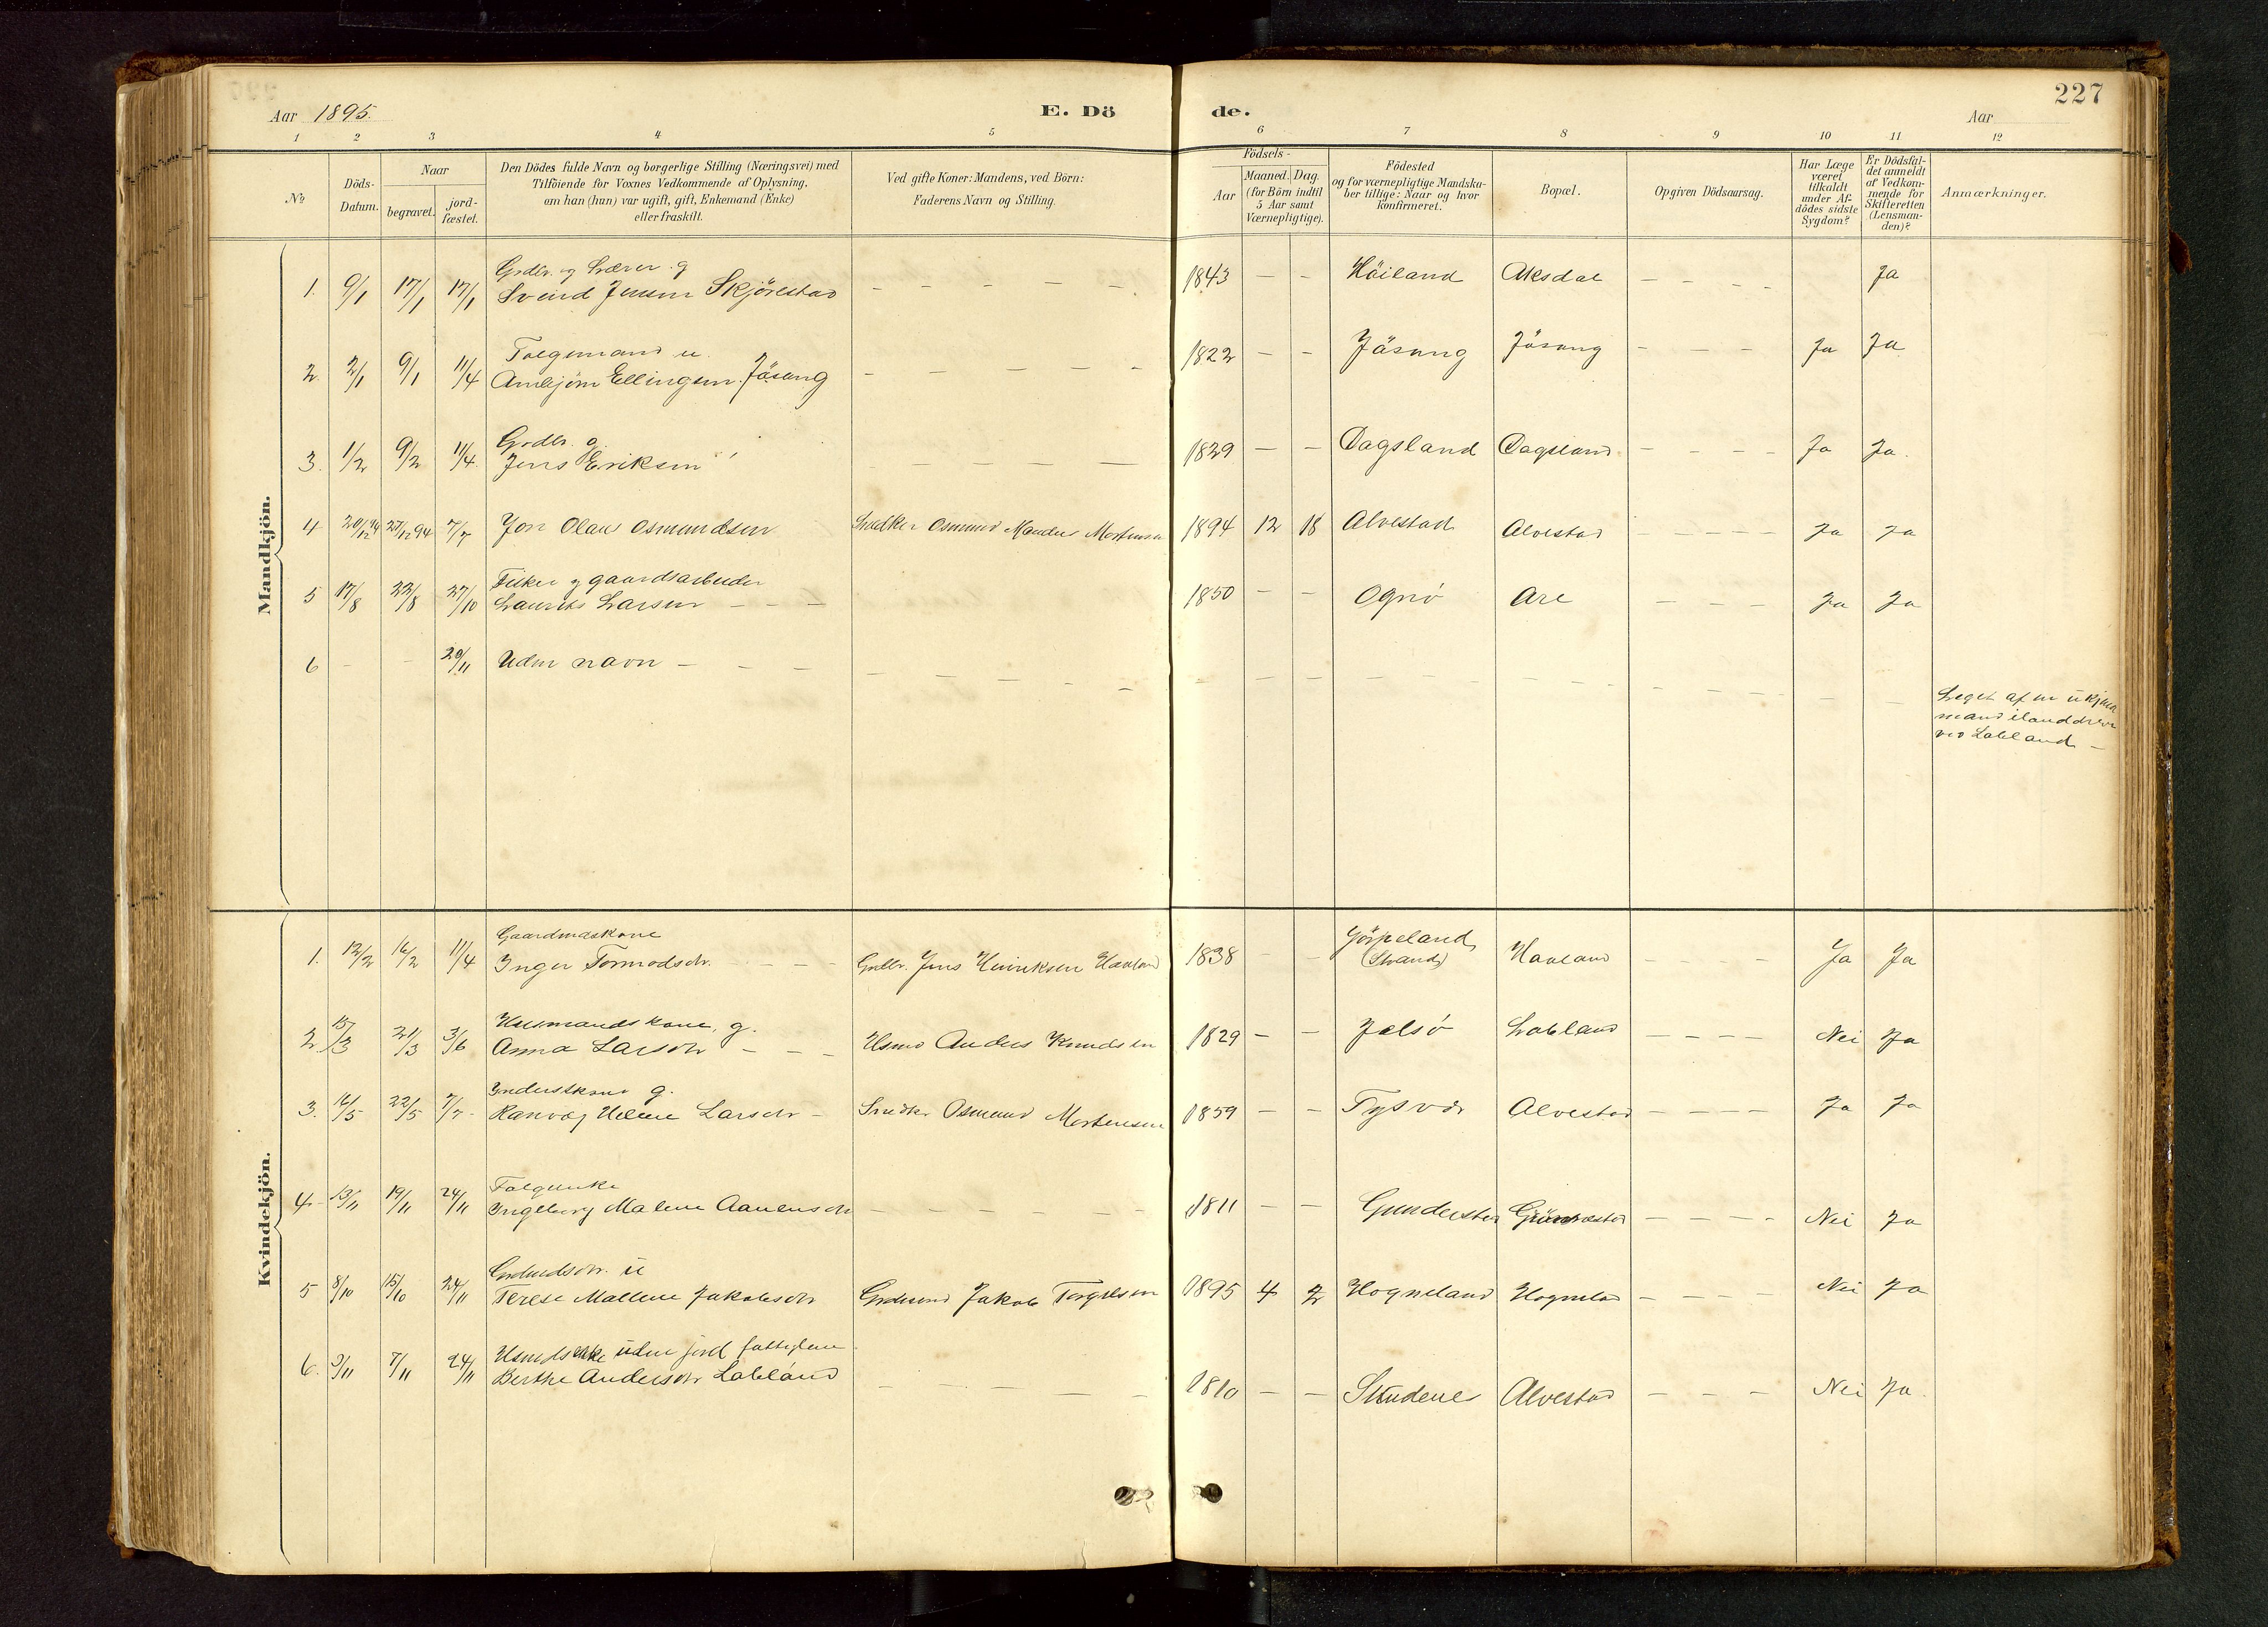 227
Aar 1895.
E. Dö de.
Aar
1 2 3 4 5 6 7 8 9 10 11 12
No
Döds-
Datum.
Naar
begravet.
jord-
fæstet.
Den Dödes fulde Navn og borgerlige Stilling (Næringsvei) med
Tilföiende for Voxnes Vedkommende af Oplysning,
om han (hun) var ugift, gift, Enkemand (Enke)
eller fraskilt.
Ved gifte Koner: Mandens, ved Börn:
Faderens Navn og Stilling.
Födsels-
Aar
Maaned. Dag.
(for Börn indtil
5 Aar samt
Værnepligtige).
Födested
og for værnepligtige Mandska-
ber tillige: Naar og hvor
konfirmeret.
Bopæl.
Opgiven Dödsaarsag.
Har Læge
været
tilkaldt
under Af-
dödes sidste
Sygdom?
Er Dödsfal-
det anmeldt
af Vedkom-
mende for
Skifteretten
(Lensman-
den)?
Anmærkninger.
Mandkjön.
Grdbr. og Lærer. g
1. 9/1 17/1 17/1 Svend Jensen Skjörestad - - - - - 1843 - - Häiland Aksdal - - - - Ja
Folgemand u.
2. 2/1 9/1 11/4 Ambjörn Ellingsen Jösang - - - - - 1822 - - Jäsang Jösang - - - Ja Ja
Grdbr. g.
3. 1/2 9/2 11/4. Jens Eriksen - - - - 1829 - - Dagsland Dagsland - - - - Ja Ja.
4 20/12 94 27/12 94 7/7 Jon Olau Osmundsen Snedker Osmund Mortensen 1894 12 18 Alvestad Alvestad - - - - - Ja Ja
Fisker og gaardsarbeider
5 17/8 23/8 27/10 Laurits Larsen - - - 1850 - - Ognö Are - - - Ja Ja
6 - - 20/11 Uden navn - - - - - - - - - - - - - - - - - -
Leget af en ukjendt
mand ilanddreven
ved Lableland -
Kvindekjön.
Gaardmaskone
1. 12/2 16/2 11/4 Inger Tormodsdtr. - - - - Grdbr. Jens Henriksen Haaland 1838 - - Jörpeland
(Strand) Haaland - - - - Ja Ja
Husmandskone, g.
2. 15/3 21/3 3/6 Anna Larsdtr - - - Husmd Anders Knudsen 1829 - - Jelsö Labland - - - - Nei Ja
Inderstkone g.
3. 16/5 22/5 7/7 - Ranvæj Helene Larsdtr - Snedker Osmund Mortensen 1859 - - Tysvær Alvestad - - - - Ja Ja
Folgeenke
4 - 13/11 19/11 24/11 Ingeborg Malene Aanensdtr - - - - - - 1811 - - Gunderstad - - - - Nei Ja
Grdmdsdtr. u
5 8/10 15/10 24/11 Terese Mallene Jakobsdtr Grdmand Jakob Torgilsen 1895 4 2 Hogneland Hogneland - - - - Nei Ja
Husmdsenke uden jord fattiglem
6. 3/11 7/11 24/11 Berthe Andersdtr Labland - - - - - 1810 - - Skudene Alvestad - - - - Nei Ja.